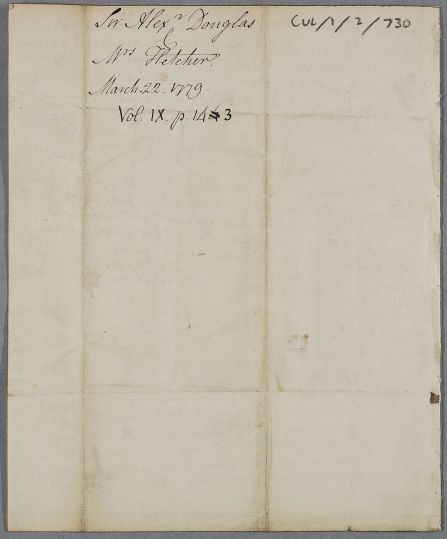 Sir Alexr Douglas
CUL/1/2/730
&
Mrs Fletcher.
March 22. 1779.
Vol. IX. p 143